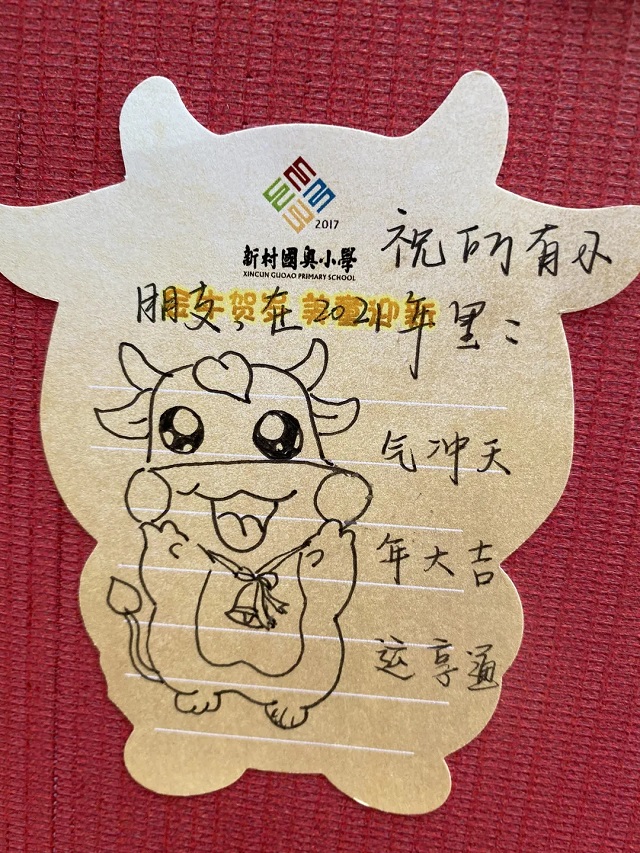 2017
新村國奥小學
XINCUN GUOAO PRIMARY SCHOOL
祝所有小
金牛贺岁 美童迎新
朋友,在2021年里:
气冲天
年大吉
运享通